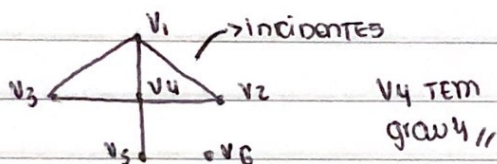 V1
→incidentes
V3 V4 V2
V4 TEM
grau 4 //
V5 V6